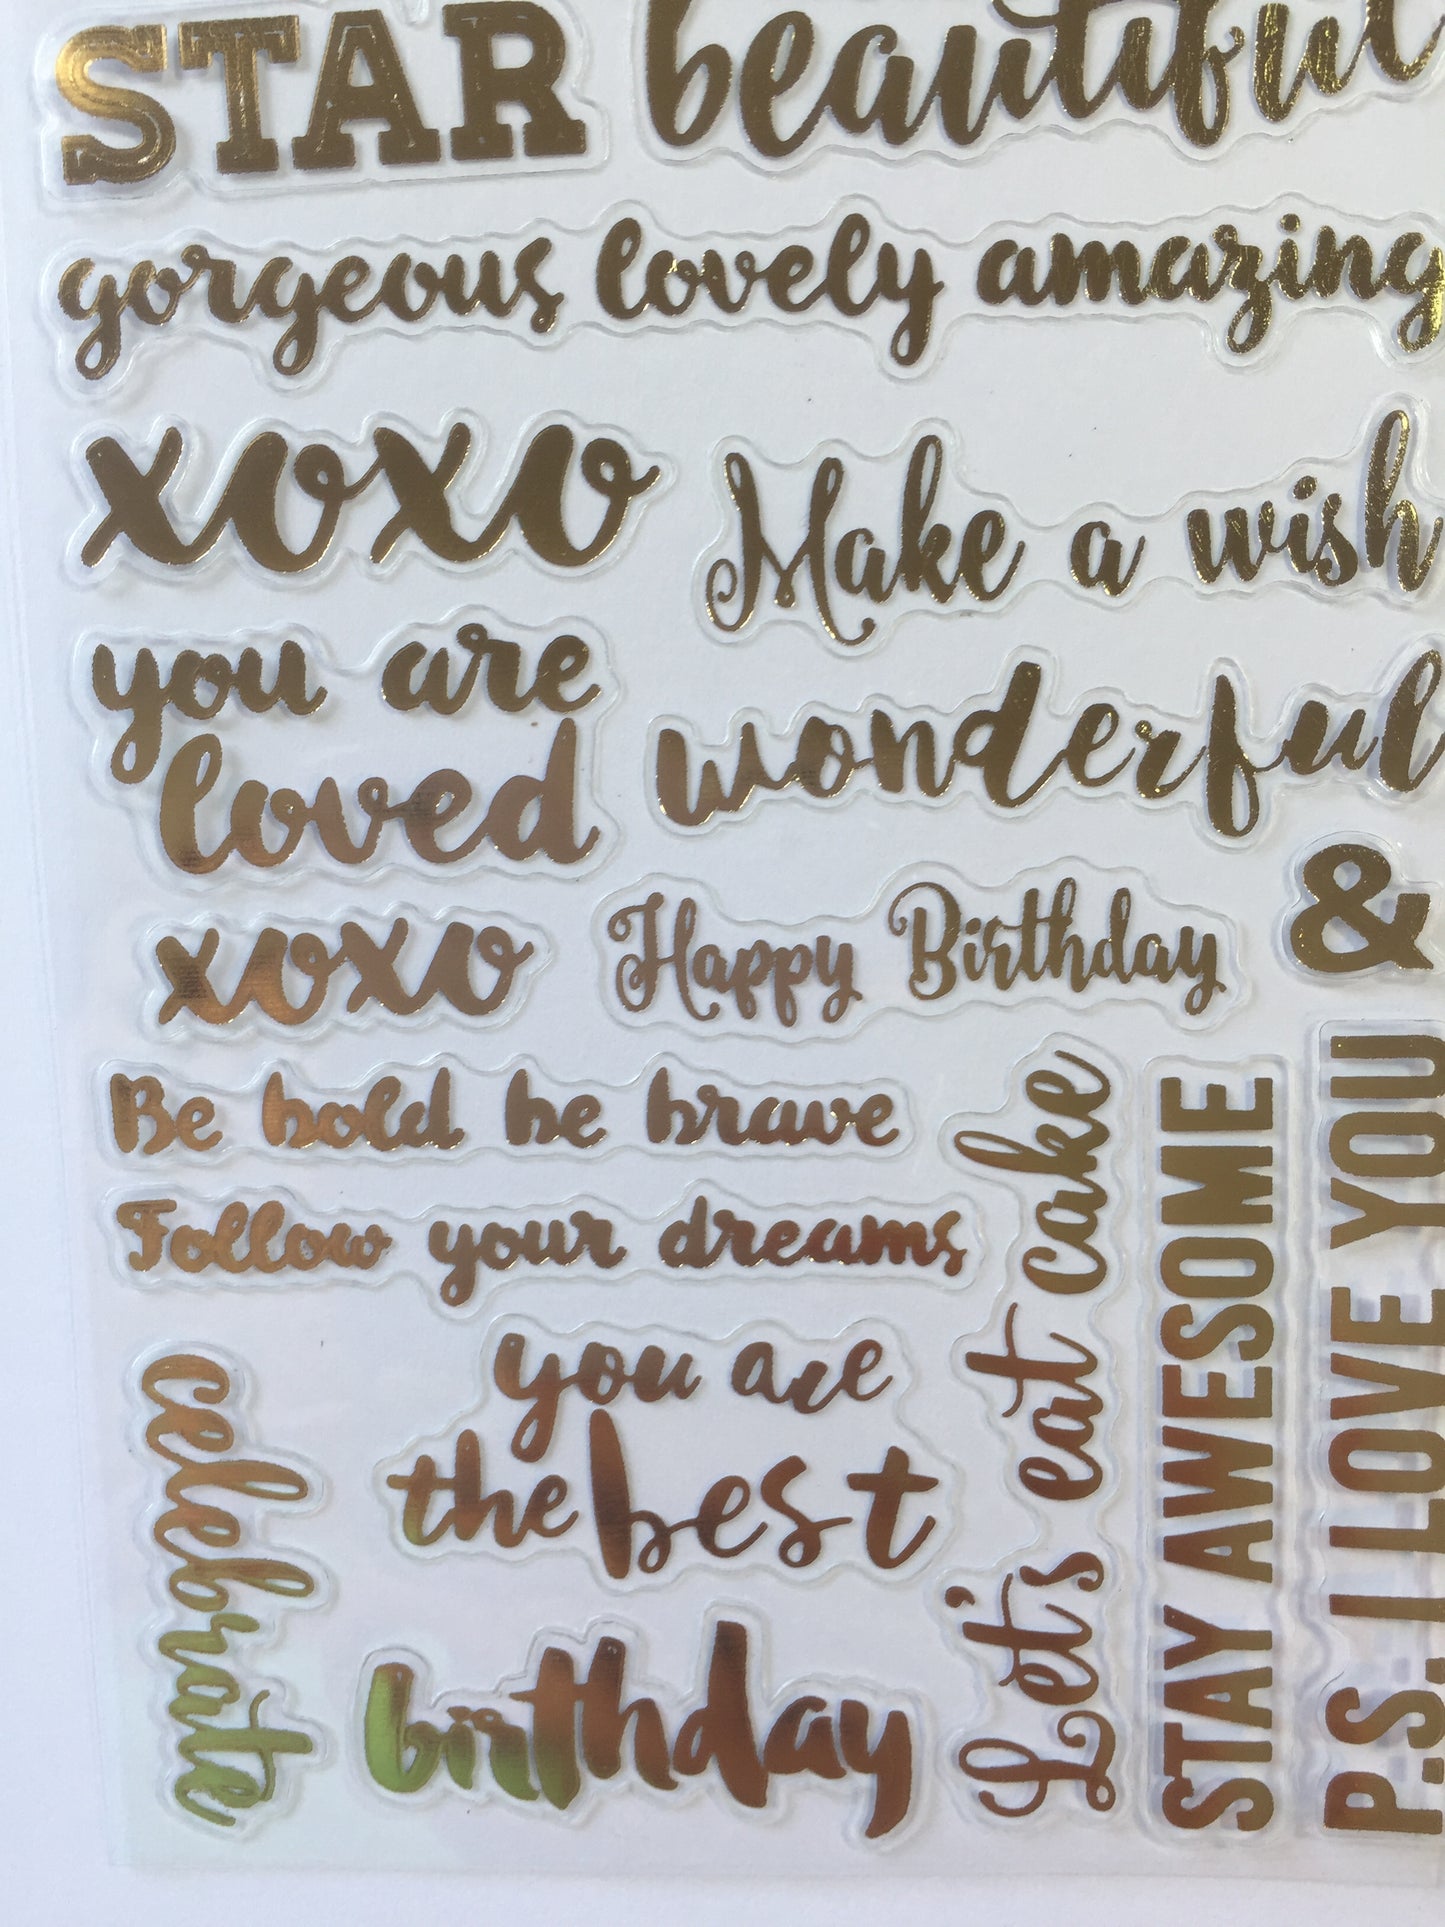 STAR beautiful
gorgeous lovely amazing
xoxo
Make a wish
you are
loved
wonderful
xoxo
Happy Birthday
&
Be bold be brave
Follow your dreams
celebrate
you are
the best
birthday
Let's eat cake
STAY AWESOME
P.S. I LOVE YOU